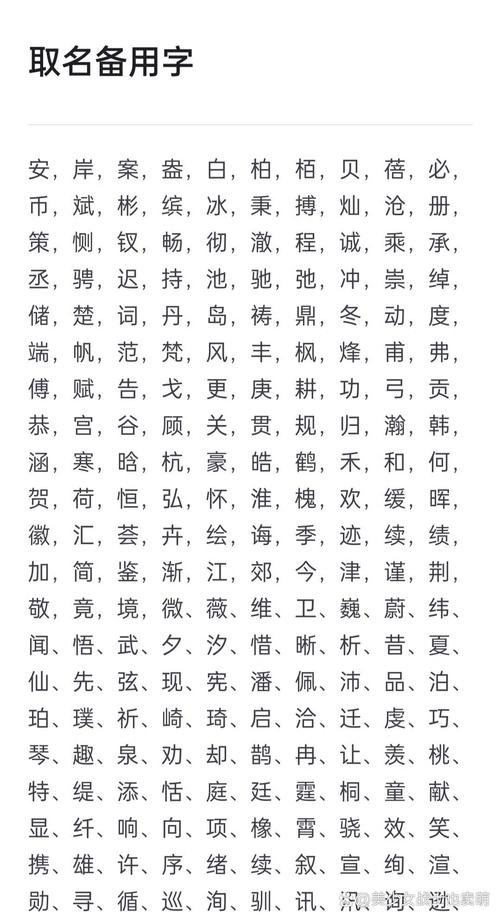 取名备用字
安，岸，案，盎，白，柏，栢，贝，蓓，必，
币，斌，彬，缤，冰，秉，搏，灿，沧，册，
策，恻，钗，畅，彻，澈，程，诚，乘，承，
丞，骋，迟，持，池，驰，弛，冲，崇，绰，
储，楚，词，丹，岛，祷，鼎，冬，动，度，
端，帆，范，梵，风，丰，枫，烽，甫，弗，
傅，赋，告，戈，更，庚，耕，功，弓，贡，
恭，宫，谷，顾，关，贯，规，归，瀚，韩，
涵，寒，晗，杭，豪，皓，鹤，禾，和，何，
贺，荷，恒，弘，怀，淮，槐，欢，缓，晖，
徽，汇，荟，卉，绘，诲，季，迹，续，绩，
加，简，鉴，渐，江，郊，今，津，谨，荆，
敬，竟，境，微、薇、维、卫、巍、蔚、纬、
闻、悟、武、夕、汐、惜、晰、析、昔、夏、
仙、先、弦、现、宪、潘、佩、沛、品、泊、
珀、璞、祈、崎、琦、启、洽、迁、虔、巧、
琴、趣、泉、劝、却、鹊、冉、让、羡、桃、
特、缇、添、恬、庭、廷、霆、桐、童、献、
显、纤、响、向、项、橡、霄、骁、效、笑、
携、雄、许、序、绪、续、叙、宣、绚、渲、
勋、寻、循、巡、洵、驯、讯、